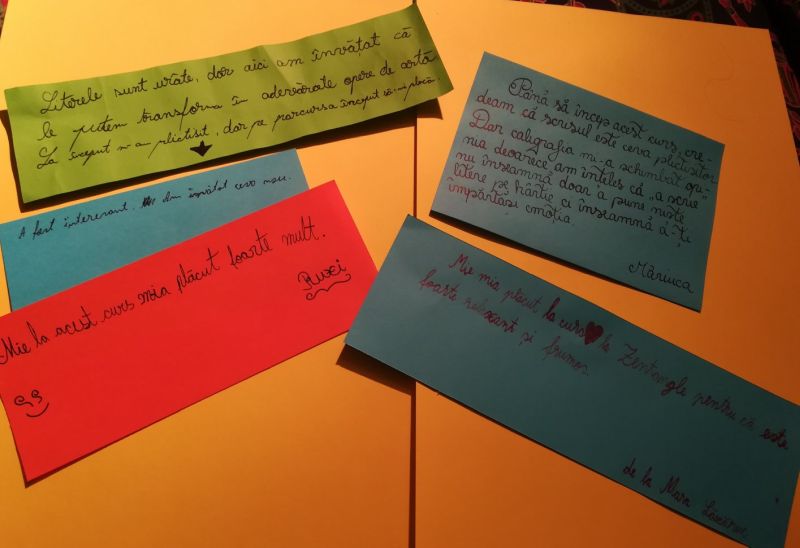 Literele sunt urâte, dar aici am învățat că
le putem transforma în adevărate opere de artă
La început m-am plictisit, dar pe parcurs a început să-mi placă.
A fost interesant. Am învățat ceva nou.
Mie la acest curs mia plăcut foarte mult.
Ruxi
Până să încep acest curs, cre-
deam că scrisul este ceva plictisitor
Dar caligrafia mi-a schimbat opi-
nia deoarece am înțeles că „a scrie"
nu înseamnă doar a pune niște
litere pe hârtie, ci înseamnă a-ți
împărtăși emoția.
Măriuca
Mie mia plăcut la curs la Zentangle pentru că este
foarte relaxant și frumos.
de la Mara